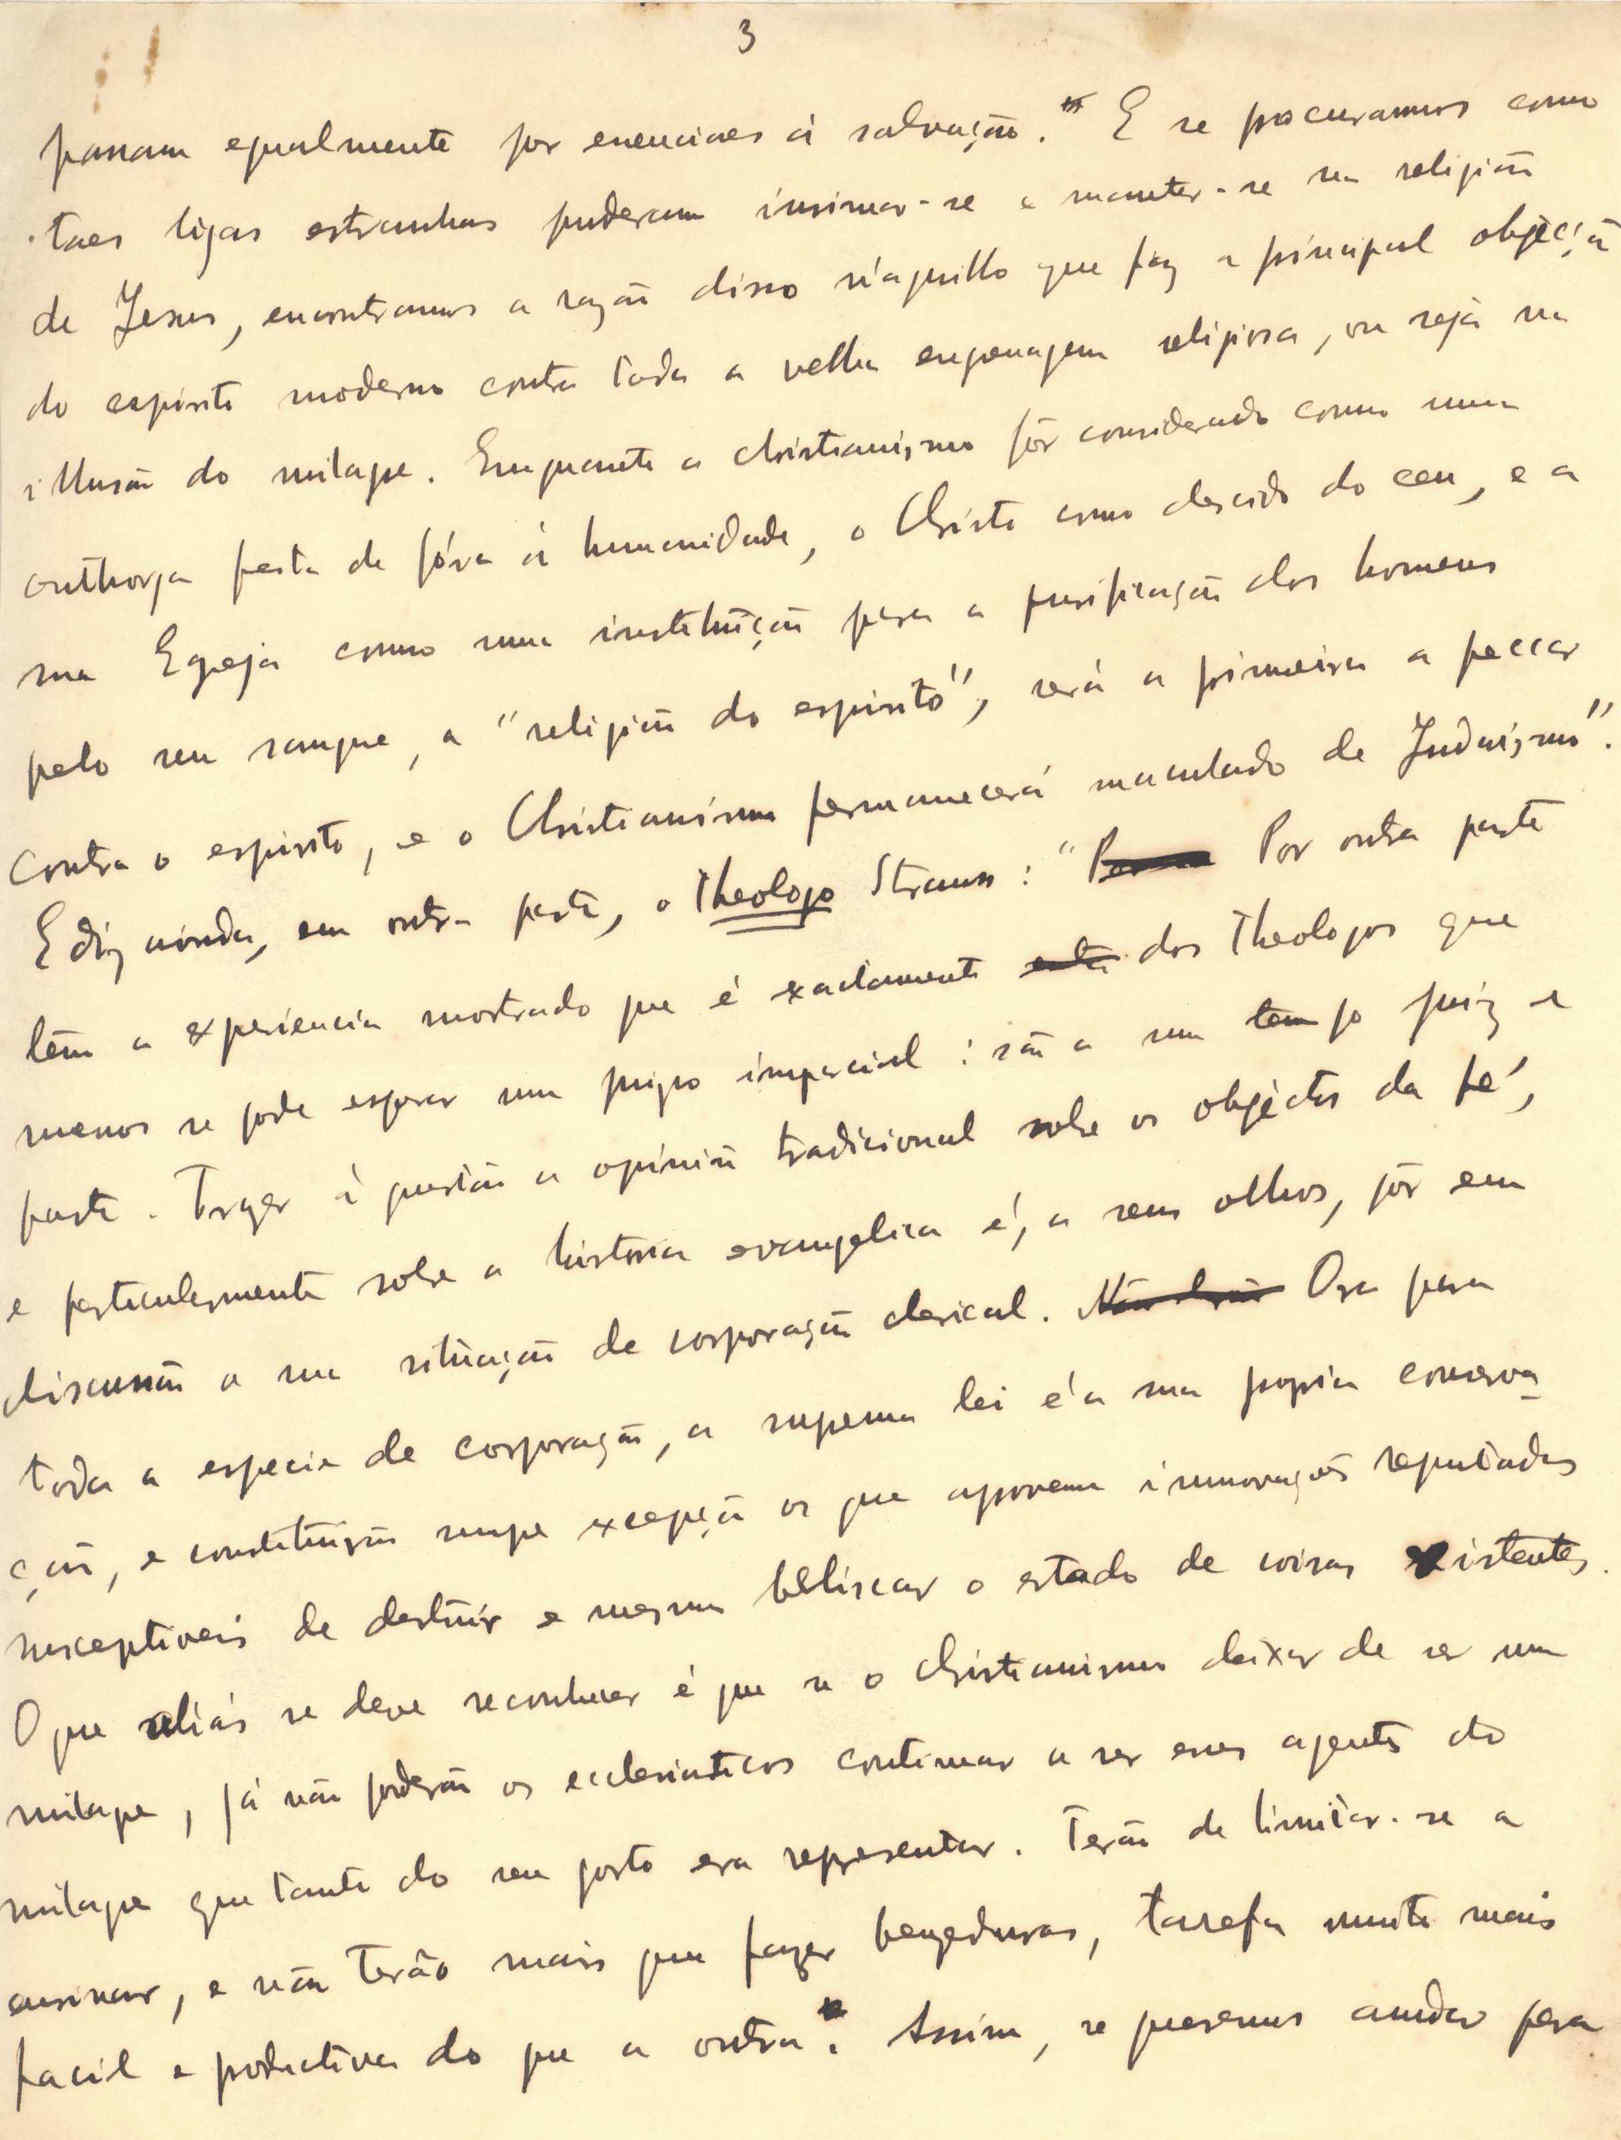 3
passam egualmente por essenciaes á salvação." E se procuramos como
taes ligas estranhas puderam insinuar-se e manter-se na religião
de Jesus, encontramos a razão disso n'aquillo que faz a principal objecçã
do espirito moderno contra toda a velha engrenagem religiosa, ou seja na
illusão do milagre. Emquanto o christianismo fôr considerado como uma
outhorga feita de fóra á humanidade, o Christo como descido do ceu, e a
sua Egreja como uma instituição para a purificação dos homens
pelo seu sangue, a "religião do espirito", será a primeira a peccar
contra o espirito, e o Christianismo permanecerá maculado de Judaismo".
E diz ainda, em outra parte, o Theologo Strauss: " Por outra parte
tem a experiencia mostrado que é exactamente dos Theologos que
menos se pode esperar um juizo imparcial: são a um tempo juiz e
parte. Trazer á questão a opinião tradicional sobre os objectos da fé,
e particularmente sobre a historia evangelica é, a seus olhos, pôr em
discussão a sua situação de corporação clerical. Ora para
toda a especie de corporação, a suprema lei é a sua propria conserva-
ção, e constituição sempre excepção os que approvem innovações reputadas
susceptiveis de destruir e mesmo beliscar o estado de coisas existentes.
O que aliás se deve reconhecer é que se o christianismo deixar de ser um
milagre, já não poderão os ecclesiasticos continuar a ser esses agentes do
milagre que tanto do seu gosto era representar. Terão de limitar-se a
ensinar, e não terão mais que fazer benzeduras, tarefa muito mais
facil e productiva do que a outra". Assim, se queremos andar para